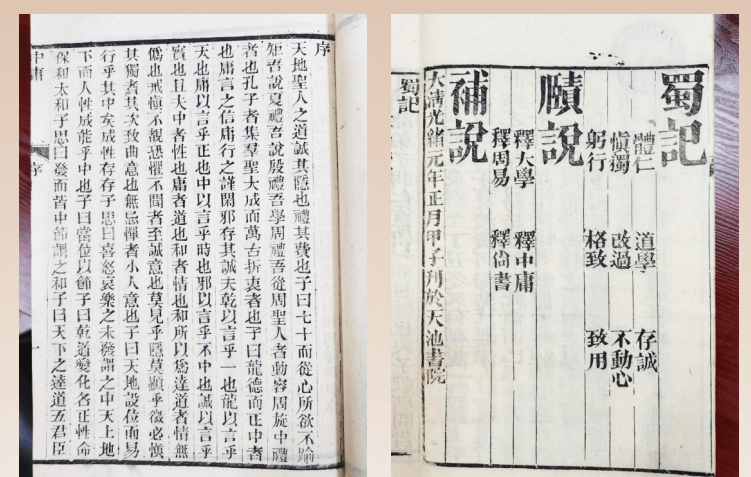 蜀記
體仁 道學 存誠
慎獨 改過 不動心
躬行 格致 致用
賾說
釋大學 釋中庸
釋周易 釋尙書
補說
大清光緒元年正月甲子刊於天池書院
蜀記
序
天地聖人之道誠其隱也禮其費也子曰七十而從心所欲不踰
矩吾說夏禮吾說殷禮吾學周禮吾從周聖人者動容周旋中禮
者也孔子者集羣聖大成而萬古折衷者也子曰龍德而正中者
也庸言之信庸行之謹閑邪存其誠夫乾以言乎一也龍以言乎
天也庸以言乎正也中以言乎時也邪以言乎不中也誠以言乎
實也且夫中者性也庸者道也和者情也和所以爲達道者情無
僞也戒慎不覩恐懼不聞者至誠意也莫見乎隱莫顯乎微必慎
其獨者其次致曲意也無忌憚者小人意也子曰天地設位而易
行乎其中矣成性存存子思曰喜怒哀樂之未發謂之中天上地
下而人性成能乎中也子曰當位以節子曰乾道變化各正性命
保和太和子思曰發而皆中節謂之和子曰天下之達道五君臣
中庸 序 一